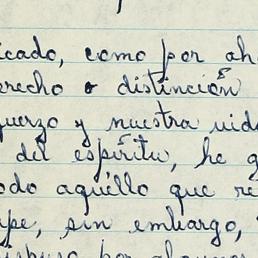 icado, como por ah
erecho o distinción
uerzo y nuestra vid
del espíritu, he g
odo aquéllo que re
pe, sin embargo,
por algunos